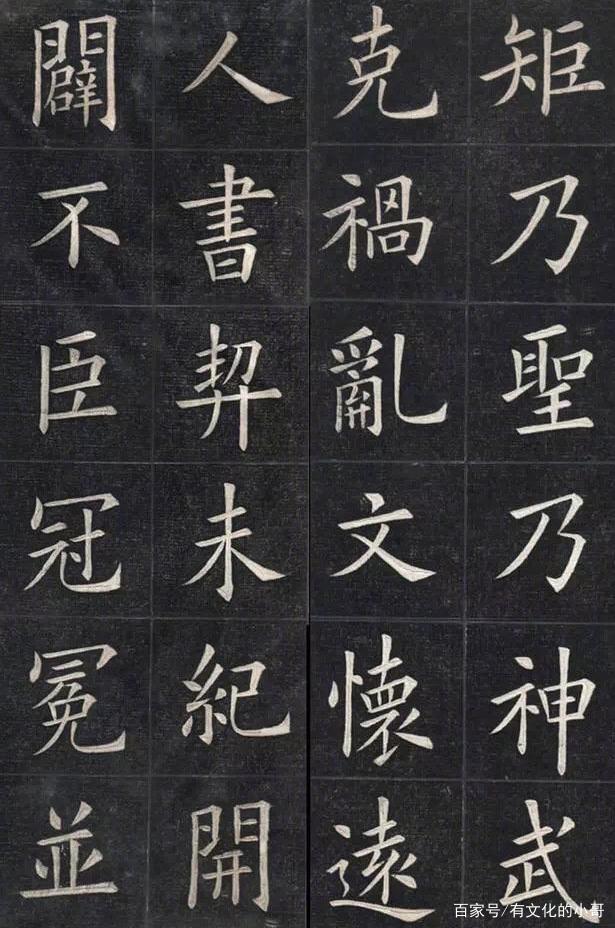 矩乃聖乃神武
克禍亂文懷遠
人書契未紀開
闢不臣冠冕並
百家号/有文化的小哥